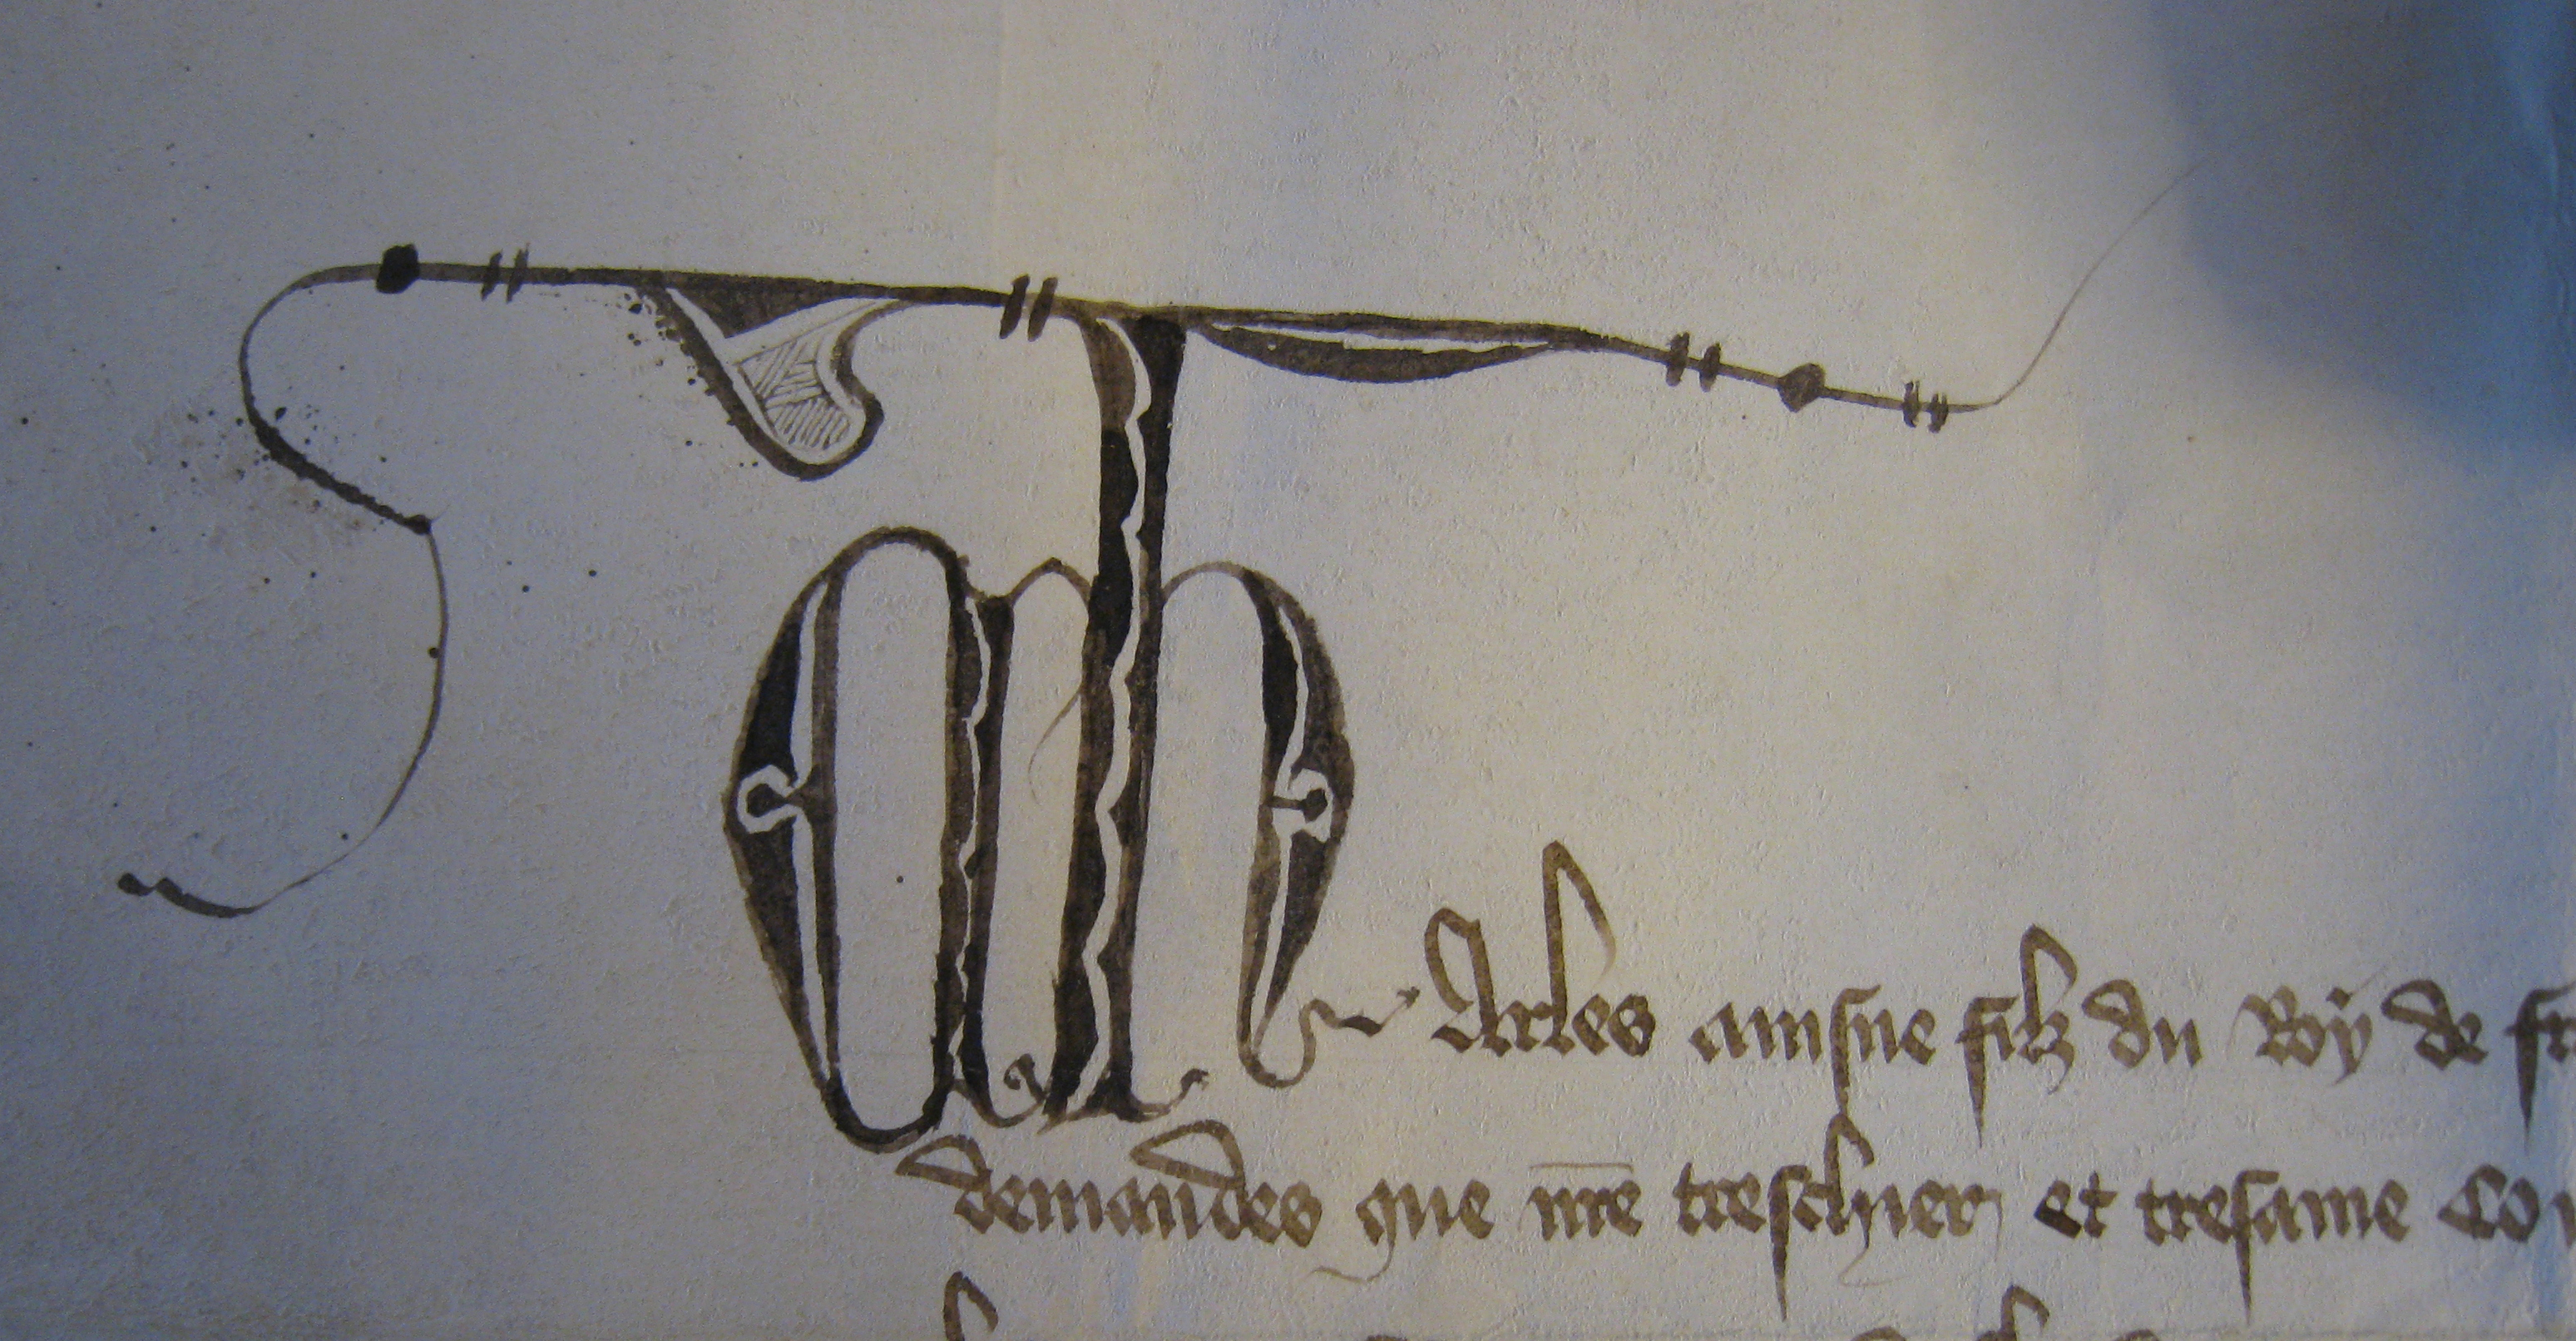 Charles ainsne filz du Roy de fr
demandes que nre treschier et tresame co